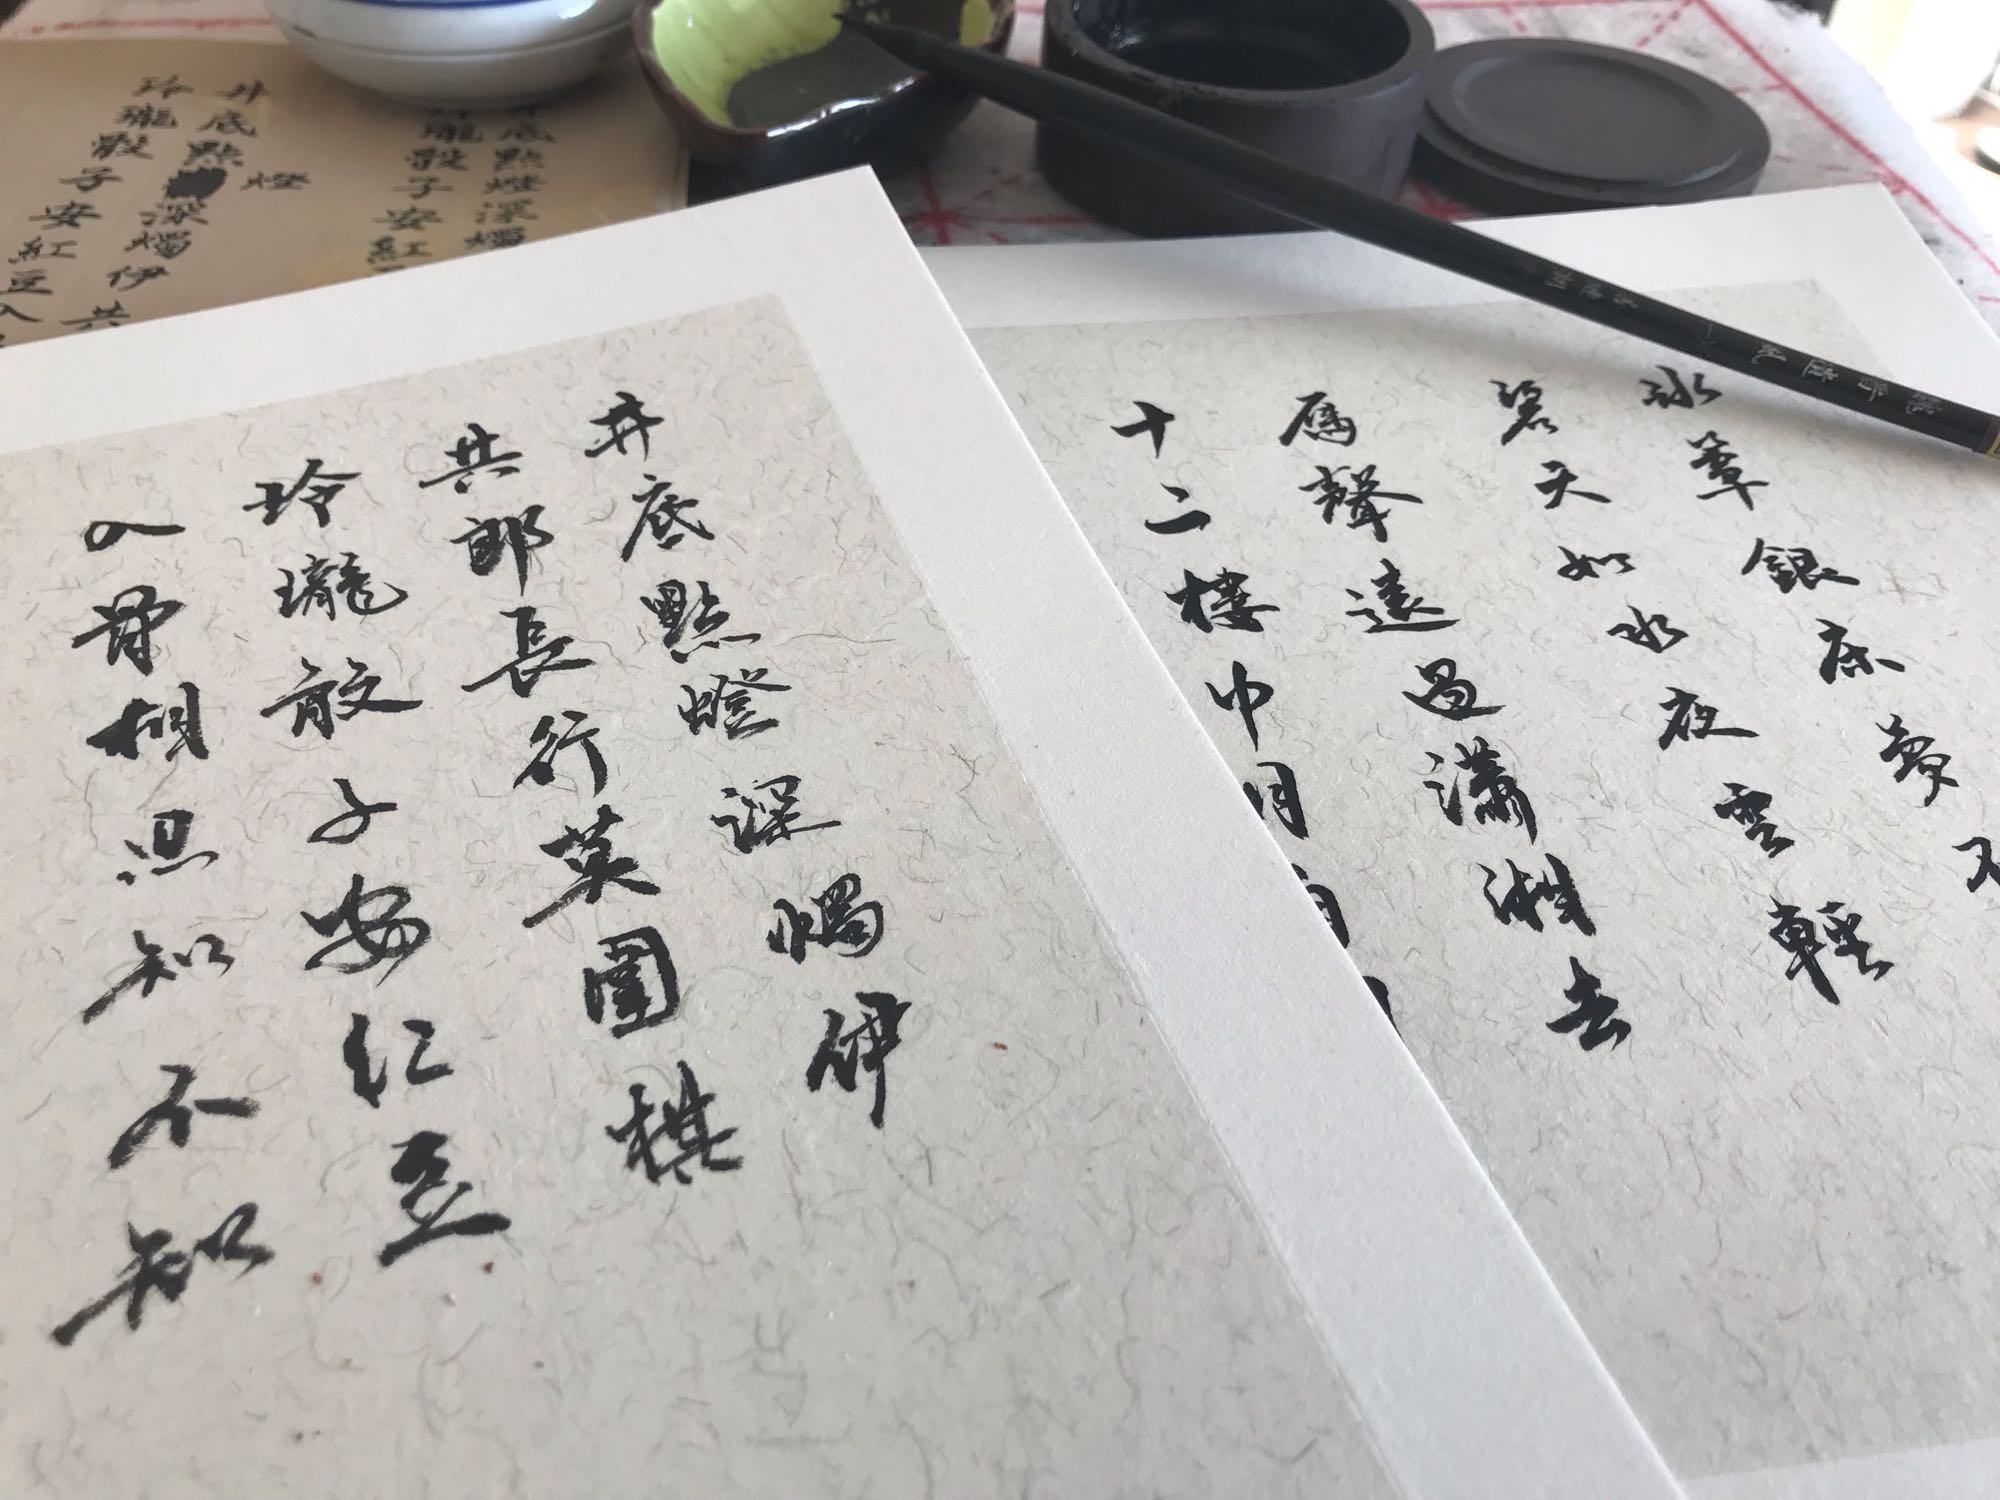 井底點燈深燭伊
共郎長行莫圍棋
玲瓏骰子安紅豆
入骨相思知不知
冰簟銀床夢不
碧天如水夜雲輕
雁聲遠過瀟湘去
十二樓中月自
井底點深燭伊
燈
共
玲瓏骰子安紅豆入
井底點燈深燭
玲瓏骰子安紅